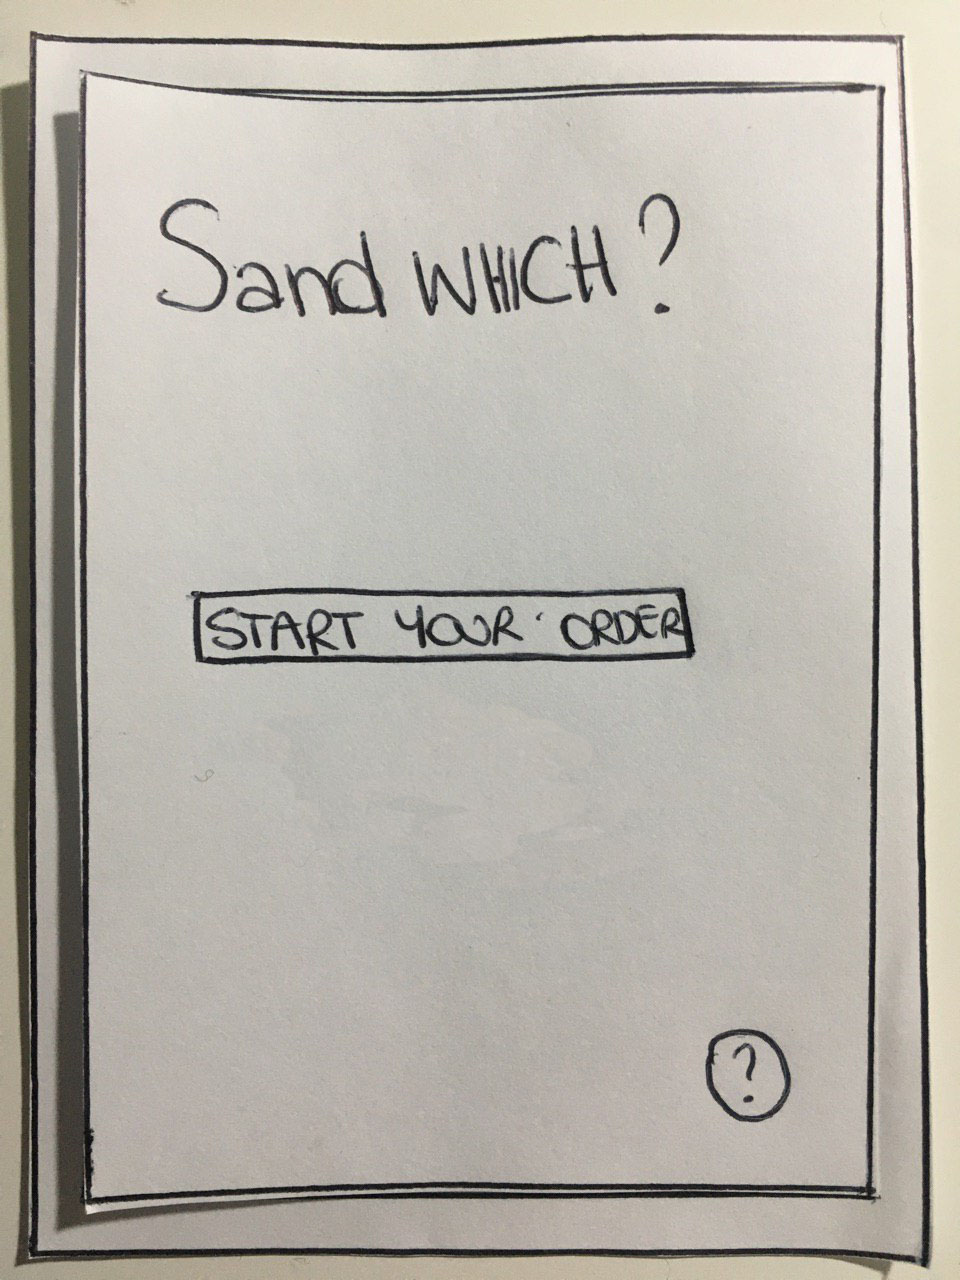 Sand WHICH?
START YOUR ORDER
?